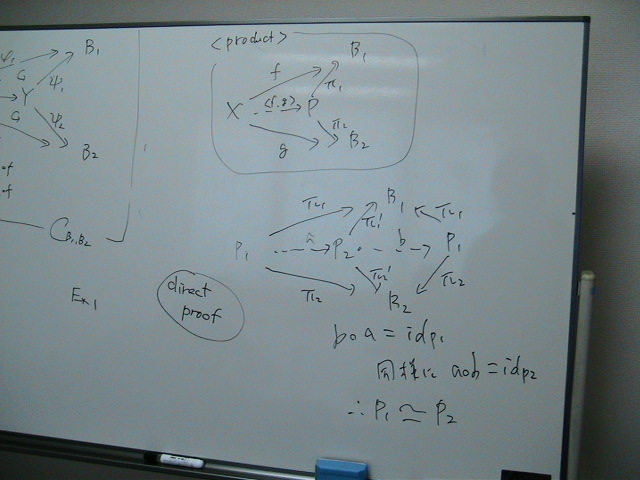 ψ₁ B₁
G Y ψ₁
G ψ₂
B₂
of
of
C_{B₁,B₂}
Ex 1
<product>
B₁
f π₁
X <f,g> P
g π₂ B₂
π₁ B₁ π₁
π₁'
P₁ a P₂ b P₁
π₂ π₂' π₂
B₂
direct
proof
b∘a = id_{P₁}
同様に a∘b = id_{P₂}
∴ P₁ ≃ P₂